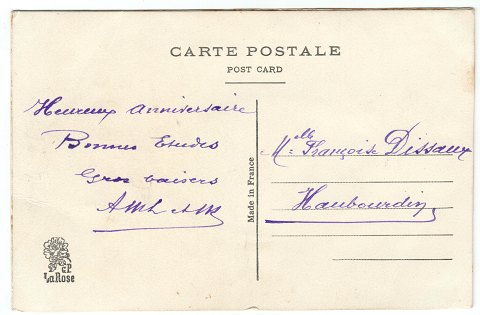 CARTE POSTALE
POST CARD
Heureux anniversaire
Bonnes Etudes
Gros baisers
Made in France
Melle Françoise Dissaux
Haubourdin
EP
La Rose